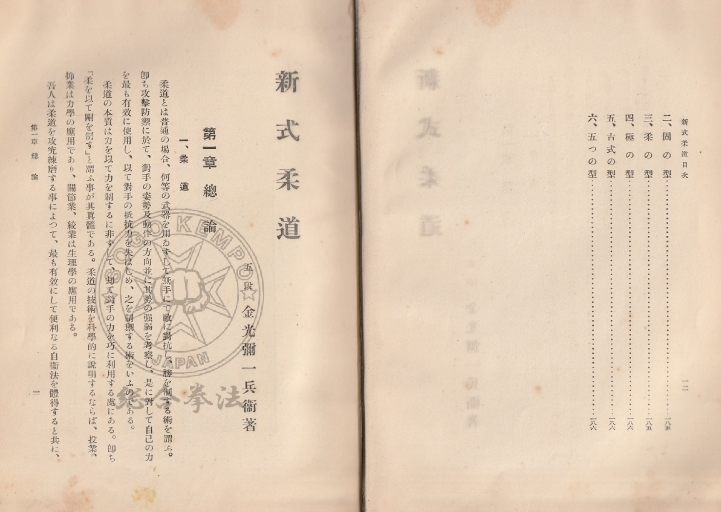 新式柔道目次
二、固の型………一八五
三、柔の型………一八五
四、極の型………一八六
五、古式の型………一八六
六、五つの型………一八六
一二
新式柔道
五段 金光彌一兵衞著
第一章 總論
一、柔道
柔道とは普通の場合、何等の武器を用ゐずして無手にて敵に對抗し、勝を制する術を謂ふ。
卽ち攻擊防禦に於て、對手の姿勢及動作の方向並に其勢の强弱を考察し、是に對して自己の力
を最も有效に使用し、以て對手の抵抗力を失はしめ、之を制禦する術をいふのである。
柔道の本質は力を以て力を制するに非ずして却て對手の力を巧に利用する處にある。卽ち
「柔を以て剛を制す」と謂ふ事が其眞髓である。柔道の技術を科學的に說明するならば、投業、
抑業は力學の應用であり、關節業、絞業は生理學の應用である。
吾人は柔道を攻究練磨する事によつて、最も有效にして便利なる自衞法を體得すると共に、
第一章 總論
一
SOGO KEMPO
JAPAN
総合拳法